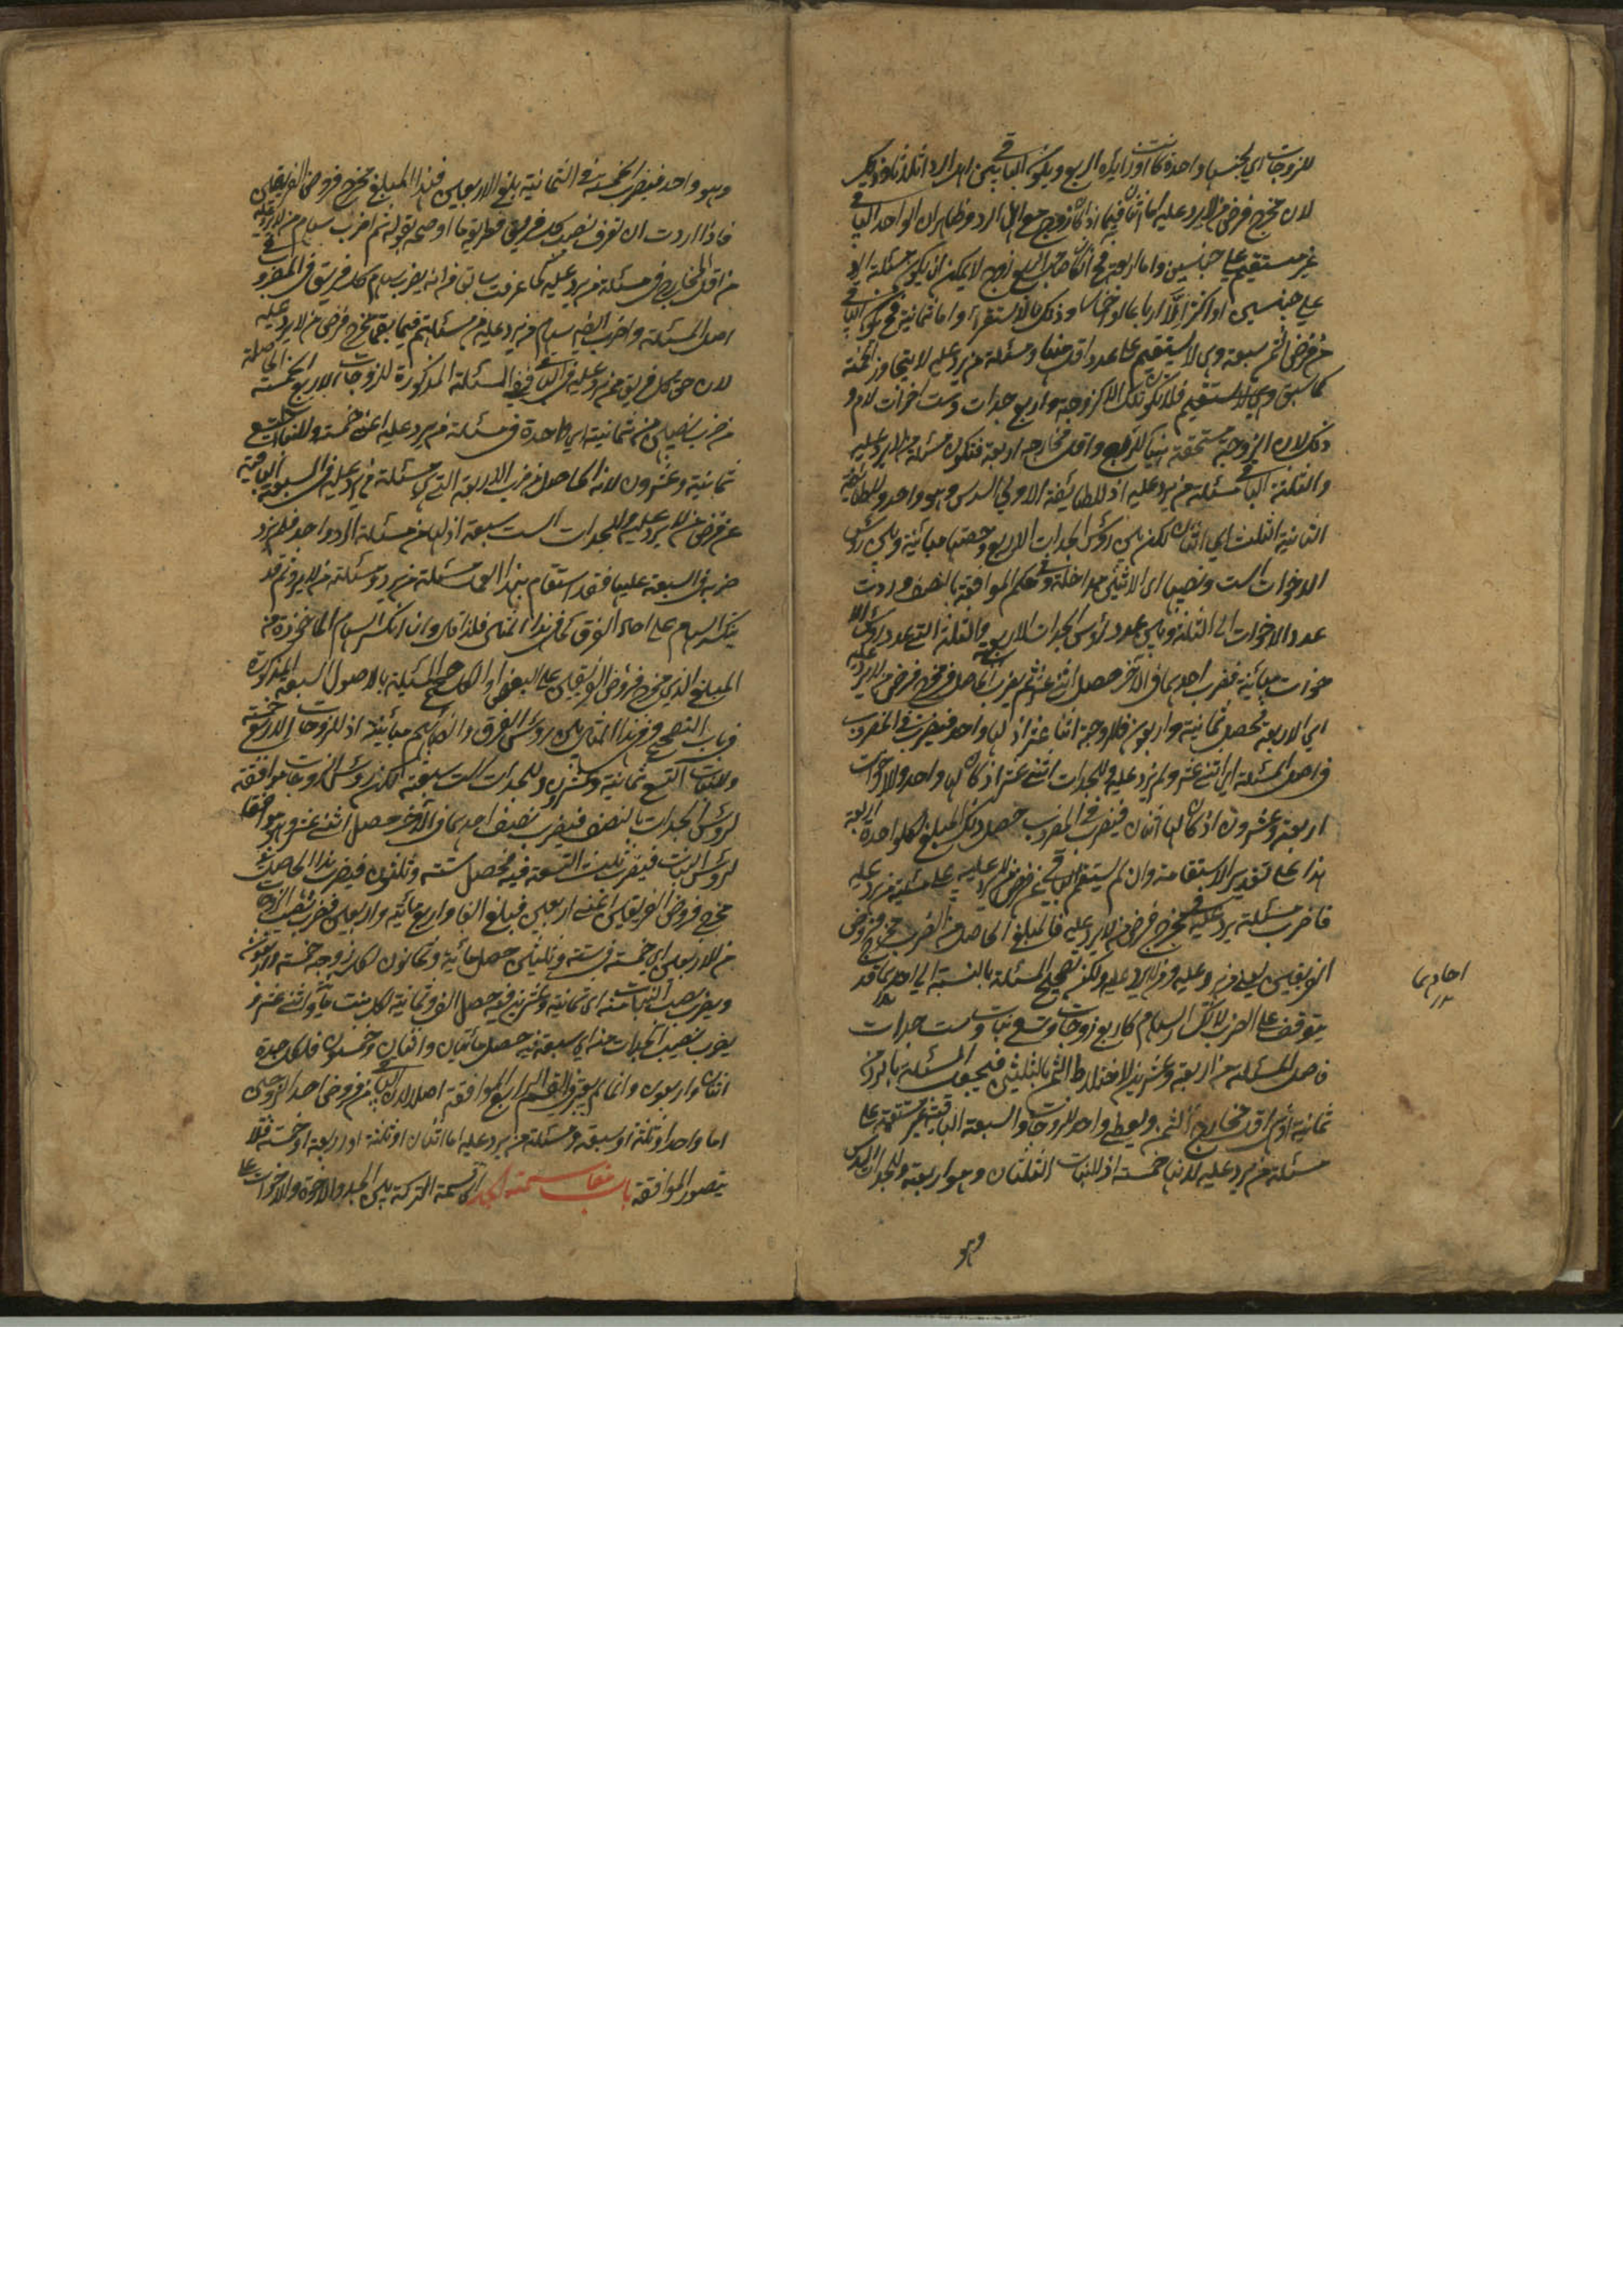 للزوجات اي لجنسها واحدة كانت او زائدة الربع ويكون الباقي بين اهل الرد اثلاثا وذلك
لان مخرج فرض من لا يرد عليه اما اثنان فيما اذا كان زوج مع اهل الرد وظاهر ان الواحد الباقي
غير مستقيم على جنسين واما اربعة فح ان كان صاحب الربع الزوج لا يمكن ان يكون مسئلة الرد
على جنسين او اكثر الا ارباعا او اخماسا وذلك بالاستقراء واما ثمانية فح يكون الباقي
من فرض الثمن سبعة وهي لا يستقيم على عدد اقل منها ومسئلة من يرد عليه لا يتجاوز الخمسة
كما سبق وهي لا تستقيم فلا تكون تلك الا كزوجة واربع جدات وست اخوات لام و
ذلك لان الزوجة مستحقة هنا للربع واقل مخارجه اربعة فتكون مسئلة من لا يرد عليه
والثلثة الباقي مسئلة من يرد عليه اذ للطائفة الاولى السدس وهو واحد وللطائفة
الثانية الثلث اي اثنان لكن بين رؤس الجدات الاربع وحصتها مباينة وبين رؤس
الاخوات الست ونصيبها اي الاثنين مداخلة وفي حكم الموافقة بالنصف فردت
عدد الاخوات الى الثلثة وبين عدد رؤس الجدات الاربع والثلثة التي عدد رؤس الا
خوات مباينة فضرب احديهما في الآخر حصل اثنى عشر ثم يضرب الحاصل في مخرج فرض من لا يرد عليه
اي الاربعة تحصل ثمانية واربعون فللزوجة اثنا عشر اذ لها واحد فيضرب في المضروب
في اصل المسئلة اي اثنى عشر ولم يزد عليه وللجدات اثنى عشر اذ كان لها واحد وللاخوات
اربعة وعشرون اذ كان لها اثنان فيضرب في المضروب حصل ذلك المبلغ لكل واحدة اربعة
هذا على تقدير الاستقامة وان لم يستقم الباقي من فرض من لا يرد عليه على مسئلة من يرد عليه
فاضرب مسئلة من يرد عليه في مخرج فرض من لا يرد عليه فالمبلغ الحاصل من الضرب مخرج فروض
الفريقين يعني من يرد عليه ومن لا يرد عليه ولكن تصحيح المسئلة بالنسبة الى احديهما قد
احاديهما
١٢
يتوقف على الضرب لانكسار السهام كاربع زوجات وتسع بنات وست جدات
فاصل المسئلة من اربعة وعشرين لاختلاط الثمن بالثلثين فيجعل المسئلة بالرد من
ثمانية اذ هي اقل مخارج الثمن ويعطى واحد للزوجات والسبعة الباقية غير مستقيمة على
مسئلة من يرد عليه لانها خمسة اذ للبنات الثلثان وهو اربعة وللجدات السدس
وهو
وهو واحد فيضرب الخمسة في الثمانية يبلغ الاربعين فهذا المبلغ مخرج فروض الفريقين
فاذا اردت ان تعرف نصيب كل فريق فطريقه ما اوضحه بقوله ثم اضرب سهام من لا يرد عليه
من اقل المخارج في مسئلة من يرد عليه كما عرفت سابقا من انه يضرب سهام كل فريق في المضروب في
اصل المسئلة واضرب ايضا سهام من يرد عليه من مسئلتهم فيما بقي من مخرج فرض من لا يرد عليه
لان حق كل فريق ممن يرد عليه في الباقي ففي المسئلة المذكورة للزوجات الاربع الخمسة الحاصلة
من ضرب نصيبهن من ثمانية اي واحدة في مسئلة من يرد عليه اعني خمسة وللبنات التسع
ثمانية وعشرون لانه الحاصل من ضرب الاربعة التي من مسئلة من يرد عليه في السبعة الباقية
عن فرض من لا يرد عليه وللجدات الست سبعة اذ لها من مسئلة الرد واحد فلم يزد
ضربه في السبعة عليها فقد استقام بهذا العمل مسئلة من يرد ومسئلة من لا يرد ثم قد
ينكسر السهام على احاد الفرق كما في هذا المثال فلذا قال وان انكسر السهام الماخوذة من
المبلغ الذي مخرج فروض الفريقين على البعض او الكل صحح المسئلة بالاصول السبعة المذكورة
في باب التصحيح ففي هذا المثال بين رؤس الفرق والسهام مباينة اذ للزوجات الاربع خمسة
وللبنات التسع ثمانية وعشرون وللجدات الست سبعة لكن رؤس الزوجات موافقة
لرؤس الجدات بالنصف فيضرب نصف احديهما في الآخر حصل اثنى عشر وهو موافق
لرؤس البنات فيضرب ثلث التسعة فيه فحصل ستة وثلثون فيضرب هذا الحاصل في
مخرج فروض الفريقين اعني اربعين فيبلغ الفا واربعمائة واربعين فضرب نصيب الزوجات
من الاربعين اي خمسة في ستة وثلثين حصل مائة وثمانون لكل زوجة خمسة واربعون
ويضرب نصيب البنات منه اي ثمانية وعشرين فيه حصل الف وثمانية لكل بنت مائة واثنى عشر و
يضرب نصيب الجدات منه اي سبعة فيه حصل مائتان واثنان وخمسون فلكل جدة
اثنان واربعون وانما لم يعتبر في القسم الرابع الموافقة اصلا لان الباقي من فروض احد الزوجين
اما واحد او ثلثة او سبعة ومسئلة من يرد عليه اما اثنان او ثلثة او اربعة او خمسة فلا
يتصور الموافقة باب مقاسمة الجد اي قسمة التركة بين الجد والاخوة والاخوات على